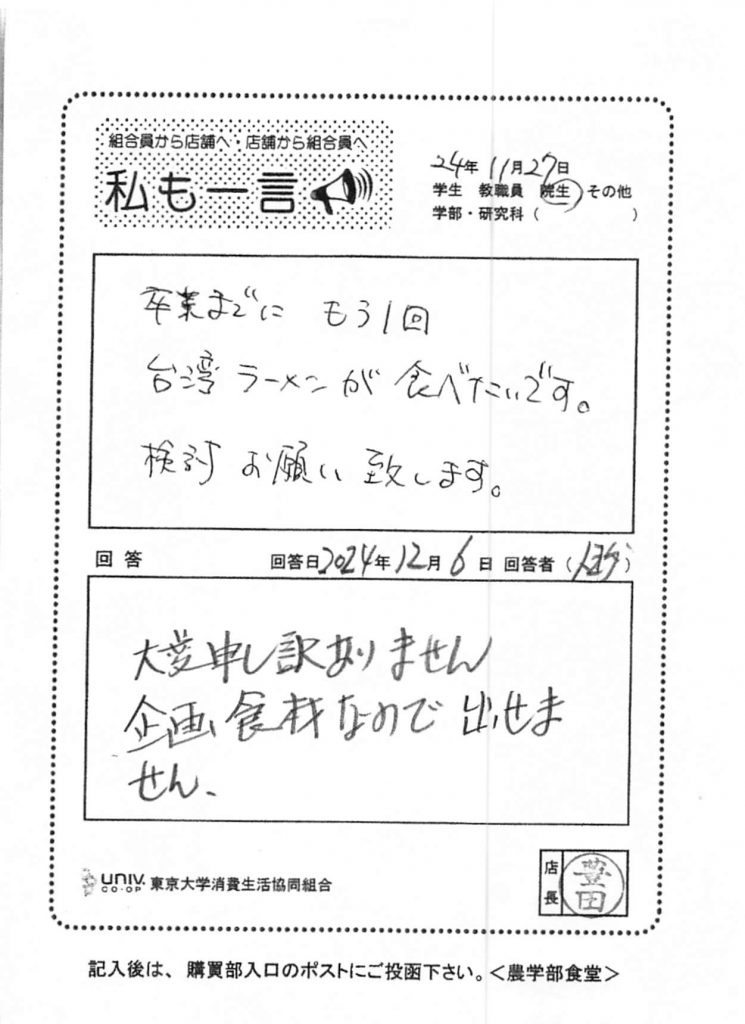 組合員から店舗へ・店舗から組合員へ
私も一言
24年11月27日
学生 教職員 院生 その他
学部・研究科( )
卒業までに もう1回
台湾ラーメンが 食べたいです。
検討 お願い 致します。
回答 回答日2024年12月6日 回答者( )
大変申し訳ありません
企画食材なので 出せま
せん.
UNIV. CO-OP 東京大学消費生活協同組合
店長 豊田
記入後は、購買部入口のポストにご投函下さい。<農学部食堂>